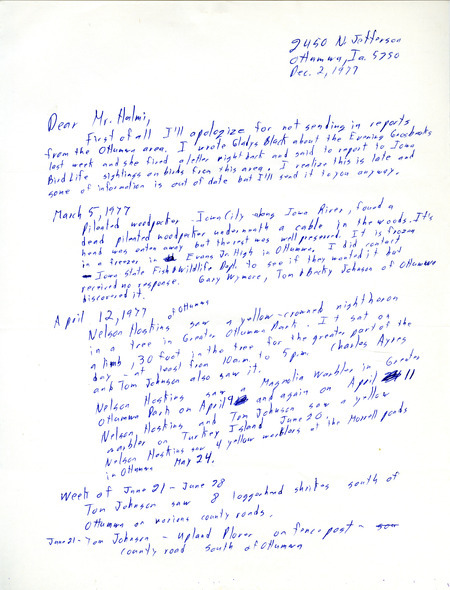 2450 N. Jefferson
Ottumwa, Ia. 5250
Dec. 2, 1977
Dear Mr. Halmi,
First of all I'll apologize for not sending in reports
from the Ottumwa area. I wrote Gladys Black about the Evening Grosbeaks
last week and she fired a letter right back and said to report to Iowa
Bird Life sightings on birds from this area. I realize this is late and
some of information is out of date but I'll send it to you anyway.
March 5, 1977
Pileated woodpecker - Iowa City along Iowa River, found a
dead pileated woodpecker underneath a cable in the woods. It's
hand was eaten away but the rest was well preserved. It is frozen
in a freezer in Evans Jr. High in Ottumwa. I did contact
Iowa State Fish & Wildlife Dept. to see if they wanted it but
received no response. Gary Wymore, Tom & Becky Johnson of Ottumwa
discovered it.
April 12, 1977
of Ottumwa
Nelson Hoskins saw a yellow-crowned night heron
in a tree in Greater Ottumwa Park. It sat on
a limb, 30 foot in the tree for the greater part of the
day - at least from 10 a.m. to 5 p.m. Charles Ayres
and Tom Johnson also saw it.
Nelson Hoskins saw a Magnolia Warbler in Greater
Ottumwa Park on April 9 and again on April 11
Nelson Hoskins and Tom Johnson saw a yellow
warbler on Turkey Island June 20.
Nelson Hoskins saw 4 yellow warblers at the Morrell ponds
in Ottumwa May 24.
Week of June 21 - June 28
Tom Johnson saw 8 loggerhead shrikes south of
Ottumwa on various county roads.
June 21 - Tom Johnson - Upland Plover on fence post -
county road south of Ottumwa